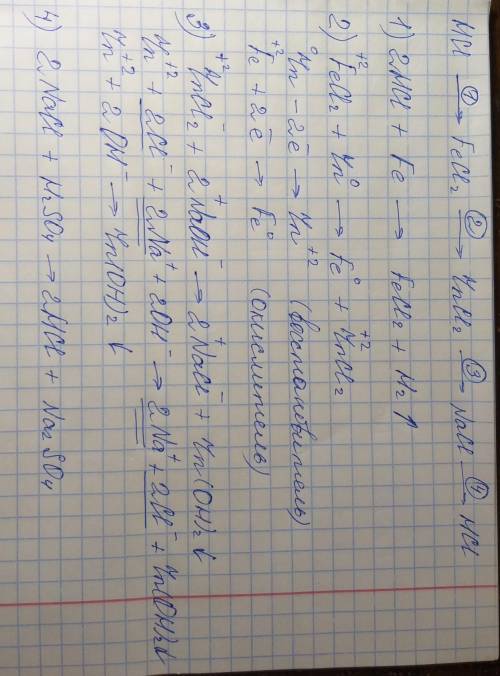 HCl ①→ FeCl₂ ②→ ZnCl₂ ③→ NaCl ④→ HCl
1) 2HCl + Fe → FeCl₂ + H₂↑
2) Fe⁺²Cl₂ + Zn⁰ → Fe⁰ + Zn⁺²Cl₂
Zn⁰ - 2ē → Zn⁺² (востановитель)
Fe⁺² + 2ē → Fe⁰ (окислитель)
3) Zn⁺²Cl₂⁻ + 2Na⁺OH⁻ → 2Na⁺Cl⁻ + Zn(OH)₂↓
Zn⁺² + 2Cl⁻ + 2Na⁺ + 2OH⁻ → 2Na⁺ + 2Cl⁻ + Zn(OH)₂↓
Zn⁺² + 2OH⁻ → Zn(OH)₂↓
4) 2NaCl + H₂SO₄ → 2HCl + Na₂SO₄